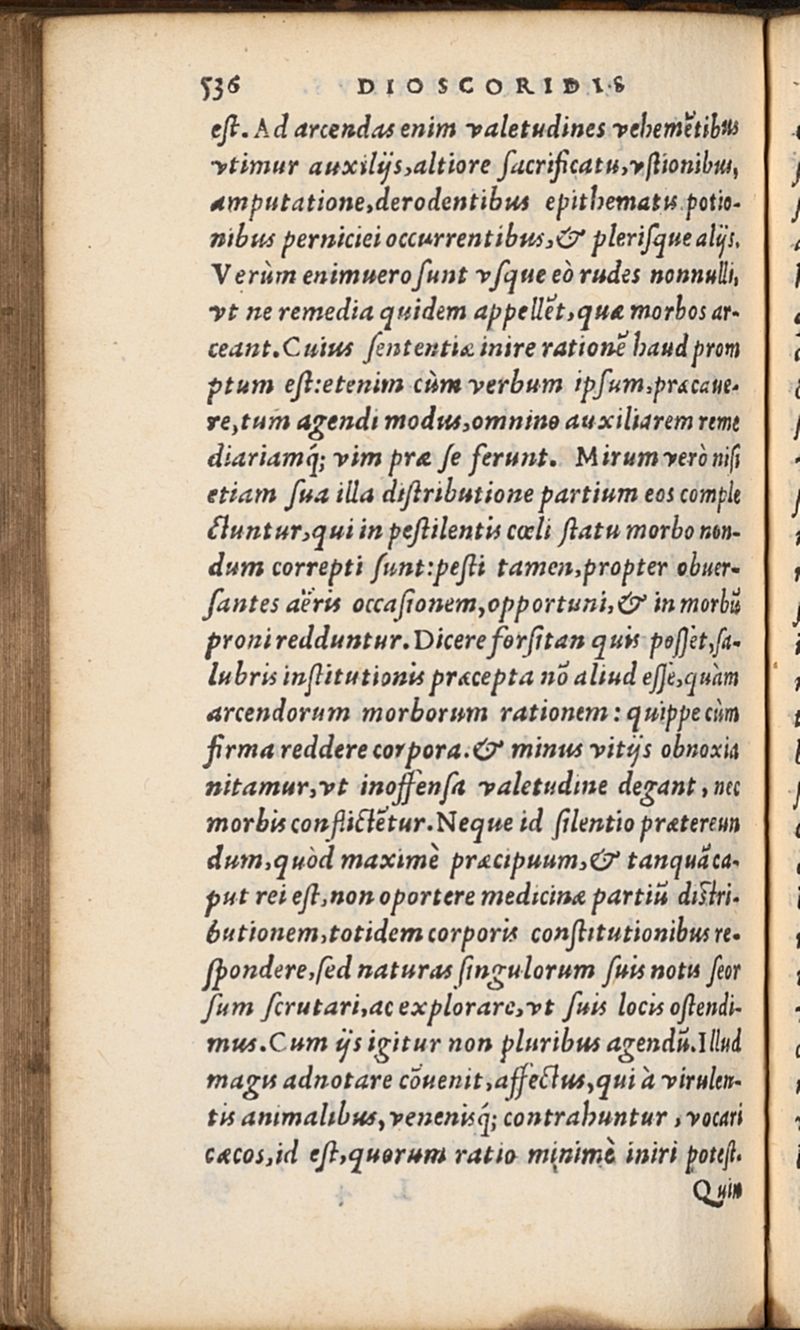 536 DIOSCORIDIS
eſt. Ad arcendas enim valetudines vehemẽtibus
vtimur auxilijs, altiore ſacrificatu, vſtionibus,
amputatione, derodentibus epithematis potio-
nibus perniciei occurrentibus, & pleriſque alijs.
Verùm enimuero ſunt vſque eò rudes nonnulli,
vt ne remedia quidem appellẽt, quæ morbos ar-
ceant. Cuius ſententiæ inire rationẽ haud prom
ptum eſt: etenim cùm verbum ipſum, præcaue-
re, tum agendi modus, omnino auxiliarem reme
diariamq́; vim præ ſe ferunt. Mirum verò niſi
etiam ſua illa diſtributione partium eos comple
ctuntur, qui in peſtilentis cœli ſtatu morbo non-
dum correpti ſunt: peſti tamen, propter obuer-
ſantes aëris occaſionem, opportuni, & in morbũ
proni redduntur. Dicere forſitan quis poſſet, ſa-
lubris inſtitutionis præcepta nõ aliud eſſe, quàm
arcendorum morborum rationem: quippe cùm
firma reddere corpora. & minus vitijs obnoxia
nitamur, vt inoffenſa valetudine degant, nec
morbis conflictẽtur. Neque id ſilentio prætereun
dum, quòd maximè præcipuum, & tanquã ca-
put rei eſt, non oportere medicinæ partiũ diſtri-
butionem, totidem corporis conſtitutionibus re-
ſpondere, ſed naturas ſingulorum ſuis notis ſeor
ſum ſcrutari, ac explorare, vt ſuis locis oſtendi-
mus. Cum ijs igitur non pluribus agendũ. Illud
magis adnotare cõuenit, affectus, qui à virulen-
tis animalibus, venenisq́; contrahuntur, vocari
cæcos, id eſt, quorum ratio minimè iniri poteſt.
Quin